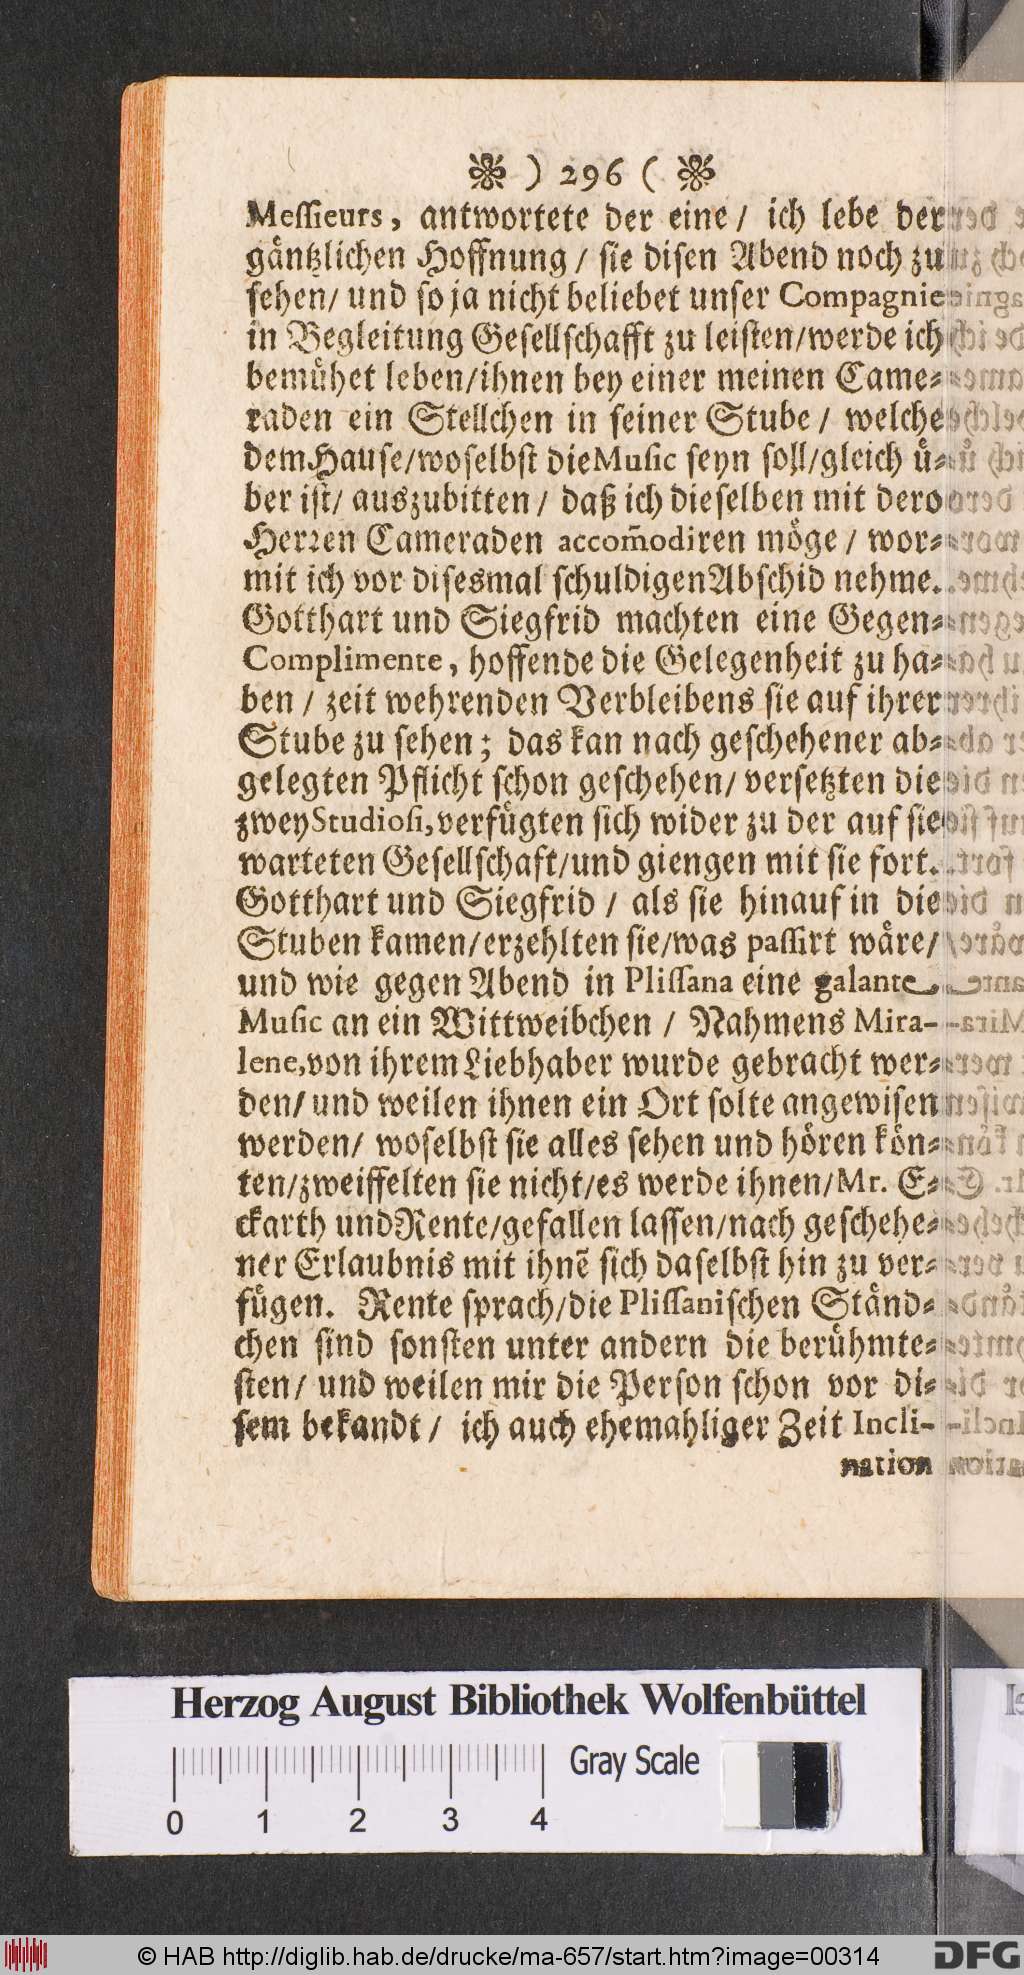 ❧ ) 296 ( ❧
Meſſieurs, antwortete der eine / ich lebe der
gaͤntzlichen Hoffnung / ſie diſen Abend noch zu
ſehen/ und ſo ja nicht beliebet unſer Compagnie
in Begleitung Geſellſchafft zu leiſten/werde ich
bemuͤhet leben/ihnen bey einer meinen Came-
raden ein Stellchen in ſeiner Stube / welche
dem Hauſe/woſelbſt die Muſic ſeyn ſoll/gleich uͤ-
ber iſt/ auszubitten / daß ich dieſelben mit dero
Herꝛen Cameraden accom̃odiren moͤge / wor-
mit ich vor diſesmal ſchuldigen Abſchid nehme.
Gotthart und Siegfrid machten eine Gegen-
Complimente, hoffende die Gelegenheit zu ha-
ben / zeit wehrenden Verbleibens ſie auf ihrer
Stube zu ſehen; das kan nach geſchehener ab-
gelegten Pflicht ſchon geſchehen/ verſetzten die
zwey Studioſi, verfuͤgten ſich wider zu der auf ſie
warteten Geſellſchaft/und giengen mit ſie fort.
Gotthart und Siegfrid / als ſie hinauf in die
Stuben kamen/erzehlten ſie/was paſſirt waͤre/
und wie gegen Abend in Pliſſana eine galante
Muſic an ein Wittweibchen / Nahmens Mira-
lene, von ihrem Liebhaber wurde gebracht wer-
den/ und weilen ihnen ein Ort ſolte angewiſen
werden/ woſelbſt ſie alles ſehen und hoͤren koͤn-
ten/zweiffelten ſie nicht/es werde ihnen/Mr. E-
ckarth und Rente/gefallen laſſen/nach geſchehe-
ner Erlaubnis mit ihnẽ ſich daſelbſt hin zu ver-
fuͤgen. Rente ſprach/die Pliſſaniſchen Staͤnd-
chen ſind ſonſten unter andern die beruͤhmte-
ſten/ und weilen mir die Perſon ſchon vor di-
ſem bekandt / ich auch ehemahliger Zeit Incli-
nation
Herzog August Bibliothek Wolfenbüttel
Gray Scale
0 1 2 3 4
© HAB http://diglib.hab.de/drucke/ma-657/start.htm?image=00314
DFG